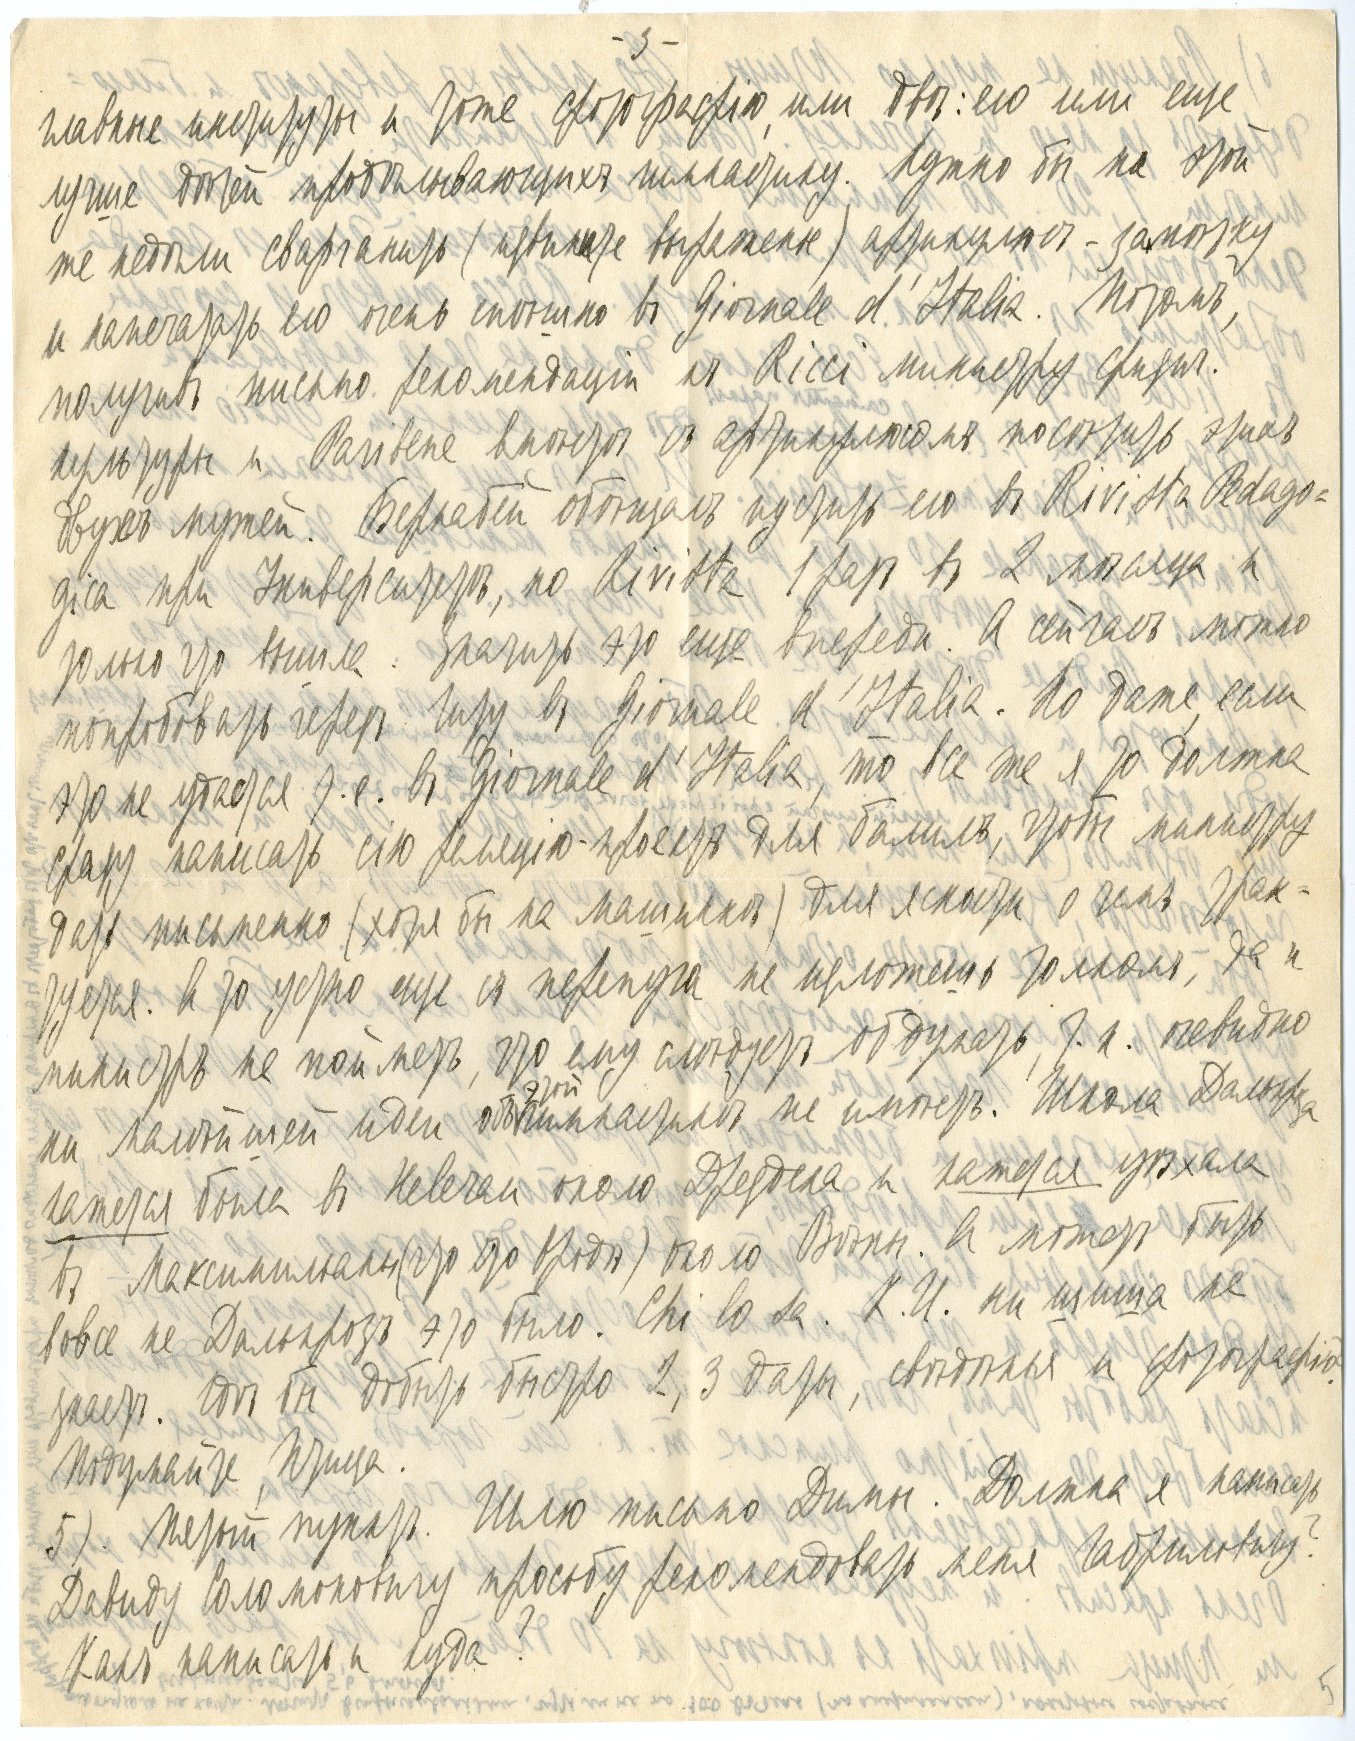 - 3 -
главные институты и тоже фотографію, или двѣ: его или еще
лучше дѣтей продѣлывающихъ гимнастику. Нужно бы на этой
же недѣли сварганить (извините выраженье) артикулясъ-замѣтку
и напечатать его очень спѣшно въ Giornale d'Italia. Потомъ,
получивъ письмо рекомендацiи къ Ricci министру физич.
культуры и Paribene вмѣстѣ съ артикулясомъ посѣтить этихъ
двухъ мужей. Бернабей обѣщалъ пустить его въ Rivista Pedago=
gica при Университетѣ, но Rivista 1 разъ въ 2 мѣсяца и
только что вышла. Значить это еще впереди. А сейчасъ можно
попробовать черезъ Титу въ Giornale d'Italia. Но даже, если
это не удастся т.е. въ Giornale d'Italia, то все же я то должна
сразу написать сію реляцію-проектъ для бамилъ, чтобы министру
дать письменно (хотя бы на машинкѣ) для ясности о чемъ трак-
туется. А то устно еще съ перепуга не изложешь толкомъ, да и
министръ не пойметъ, что ему слѣдуетъ обдумать, т.к. очевидно
ни малѣйшей идеи объ этой гимнастикѣ не имѣетъ. Школа Далькроза
кажется была въ Неlerau около Дрездена и кажется уѣхала
въ Максимильаны (что то вродѣ) около Вѣны. А можетъ быть
вовсе не Далькрозъ это было. Chi lo sa. К.И. ни шиша не
знаетъ. Гдѣ бы добыть быстро 2, 3 даты, свѣдѣнья и фотографію?
Подумайте, Птица.
5). Пятый пунктъ. Шлю письмо Димы. Должна я написать
Давиду Соломоновичу просьбу рекомендовать меня Габриловичу?
Какъ написать и куда?
5